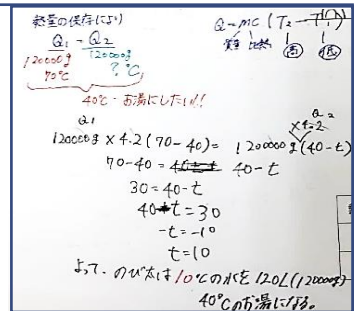 熱量の保存により
Q = mc (T₂ - T₁)
Q₁ = Q₂
質量 比熱 高 低
120000g 120000g
70℃ ?℃
40℃ お湯にしたい!!
Q₁ Q₂
120000g × 4.2 (70-40) = 120000g × 4.2 (40-t)
70-40 = 40-t
30 = 40-t
40-t = 30
-t = -10
t = 10
よって、のび太は10℃の水を120L(120000g)
40℃のお湯になる。